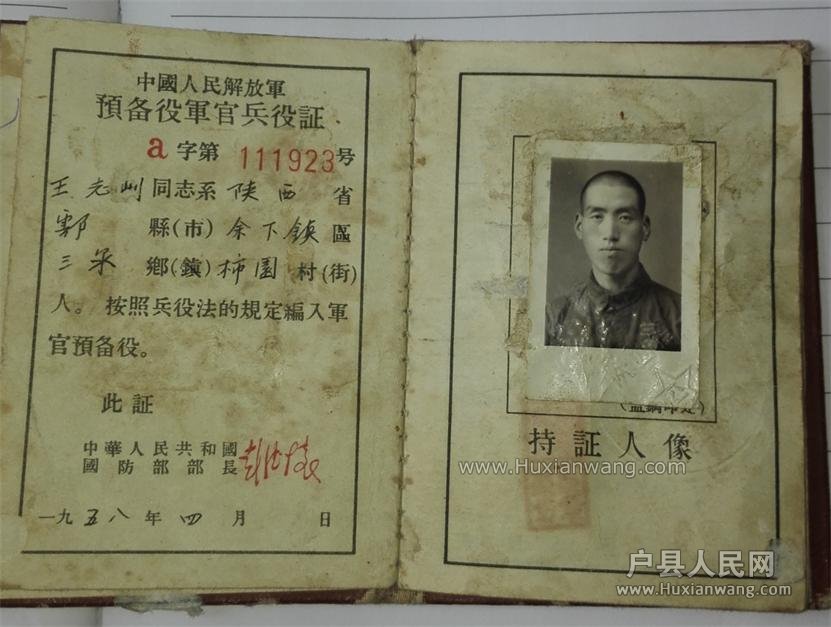 中國人民解放軍
預备役軍官兵役証
a字第 111923 号
王志州同志系陕西省
鄠縣(市)余下鎮區
三 鄉(鎮)柿園村(街)
人。按照兵役法的規定編入軍
官預备役。
此証
中華人民共和國
國防部部長 彭德懷
一九五八年四月 日
(盖鋼印处)
持証人像
www.Huxianwang.com
户县人民网
www.Huxianwang.com